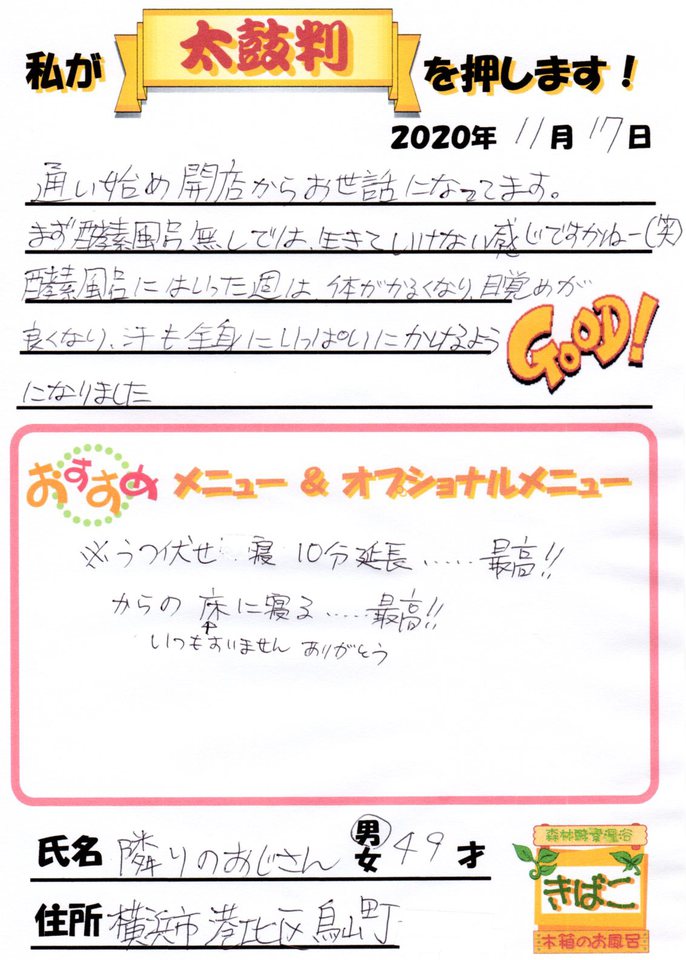 私が 太鼓判 を押します!
2020年 11月 17日
通い始め開店からお世話になってます。
まず酵素風呂無しでは、生きていけない感じですかねー(笑)
酵素風呂にはいった週は、体がかるくなり、目覚めが
良くなり、汗も全身にいっぱいにかけるよう
になりました
GOOD!
おすすめ メニュー & オプショナルメニュー
※うつ伏せ 寝 10分延長……最高!!
からの 床に寝る……最高!!
↑
いつもすいません ありがとう
氏名 隣りのおじさん 男女 49才
住所 横浜市港北区鳥山町
森林酵素温浴
きばこ
木箱のお風呂